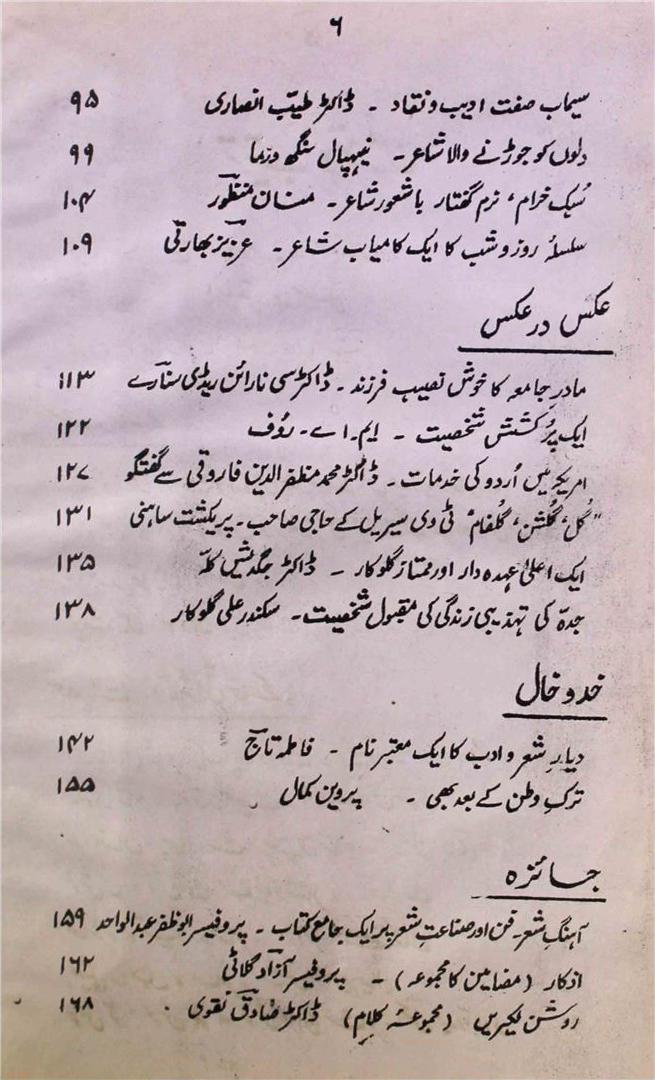 ۶
سیماب صفت ادیب و نقاد ۔ ڈاکٹر طیب انصاری ۹۵
دلوں کو جوڑنے والا شاعر ۔ نیہپال سنگھ ورما ۹۹
سُبک خرام، نرم گفتار باشعور شاعر ۔ منان منظور ۱۰۴
سلسلۂ روز و شب کا ایک کامیاب شاعر ۔ عزیز بھارتی ۱۰۹
عکس در عکس
مادرِ جامعہ کا خوش نصیب فرزند ۔ ڈاکٹر سی نارائن ریڈی سنارے ۱۱۳
ایک پُرکشش شخصیت ۔ ایم۔اے۔رؤف ۱۲۲
امریکہ میں اُردو کی خدمات ۔ ڈاکٹر محمد مظفر الدین فاروقی سے گفتگو ۱۲۷
"گُل، گلشن، گلفام" ٹی وی سیریل کے حاجی صاحب ۔ پریکشت ساہنی ۱۳۱
ایک اعلیٰ عہدہ دار اور ممتاز گلوکار ۔ ڈاکٹر جگدیش کلہ ۱۳۵
جدہ کی تہذیبی زندگی کی مقبول شخصیت ۔ سکندر علی گلوکار ۱۳۸
خد و خال
دیارِ شعر و ادب کا ایک معتبر نام ۔ فاطمہ تاج ۱۴۲
ترکِ وطن کے بعد بھی ۔ پروین کمال ۱۵۵
جائزہ
آہنگِ شعر۔ فن اور صناعتِ شعر پر ایک جامع کتاب ۔ پروفیسر ابو ظفر عبدالواحد ۱۵۹
اذکار (مضامین کا مجموعہ) ۔ پروفیسر آزاد گلاٹی ۱۶۲
روشن لکیریں (مجموعۂ کلام) ڈاکٹر صادق نقوی ۔ ۱۶۸